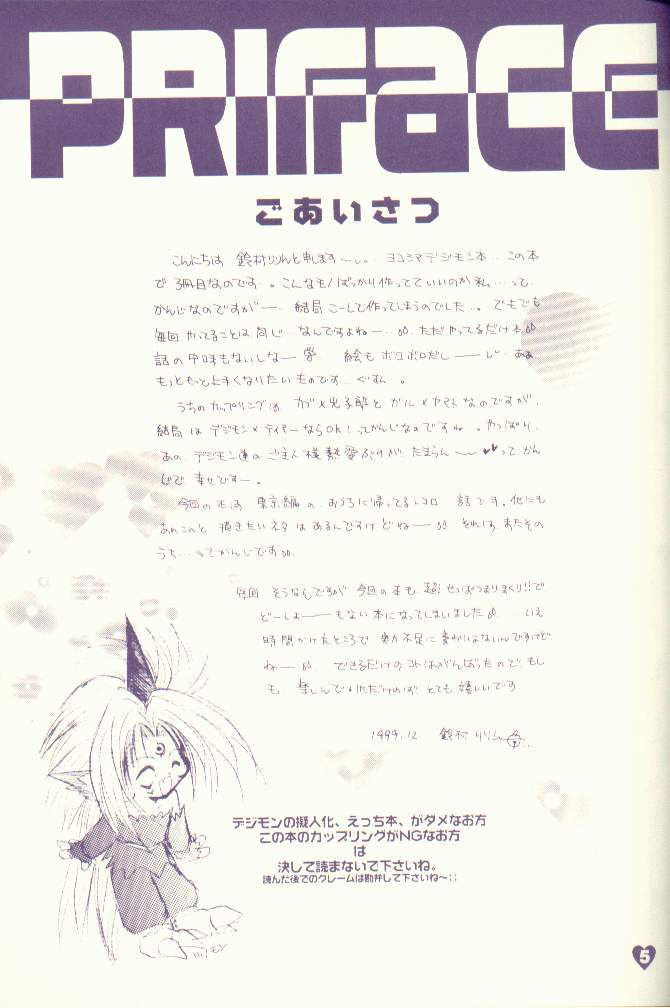 PRIFACE
ごあいさつ
こんにちは 鈴村りりんと申します ヨコシマデジモン本… この本
で 3冊目なのです…。こんなもんばっかり作ってていいのか私…って
かんじなのですが 結局 こーして作ってしまうのでした…。でもでも
毎回 やってることは 同じ… なんですよねー… ただ やってるだけ
話の中味もないしなー 絵も ボロボロだし
もっともっと上手くなりたいものです… ぐすん…。
うちのカップリングは、 ガブ×光子郎と ガル×ヤマト なのですが、
結局は デジモン×テイマーならOK！ってかんじなのですね。やっぱり、
あの デジモン達の ご主人様熱愛ぶりが たまらんー って かん
じで 幸せですー。
今回の本は 東京編の おうちに帰ってるトコロ 話です。他にも
あれこれと 描きたいネタは あるんですけどねー それは またその
うち…ってかんじです
毎回 そうなんですが 今回の本も 超！せっぱつまりまくり!!で
どーしょーもない本になってしまいました …いえ
時間かけたところで 実力不足に変わりはないんですけど
ねー できるだけのコトはがんばったので、もし
も 楽しんでいただければ とても嬉しいです
1999.12. 鈴村りりん
デジモンの擬人化、えっち本、がダメなお方
この本のカップリングがNGなお方
は
決して読まないで下さいね。
読んだ後でのクレームは勘弁して下さいね～;;
ツノモン
5